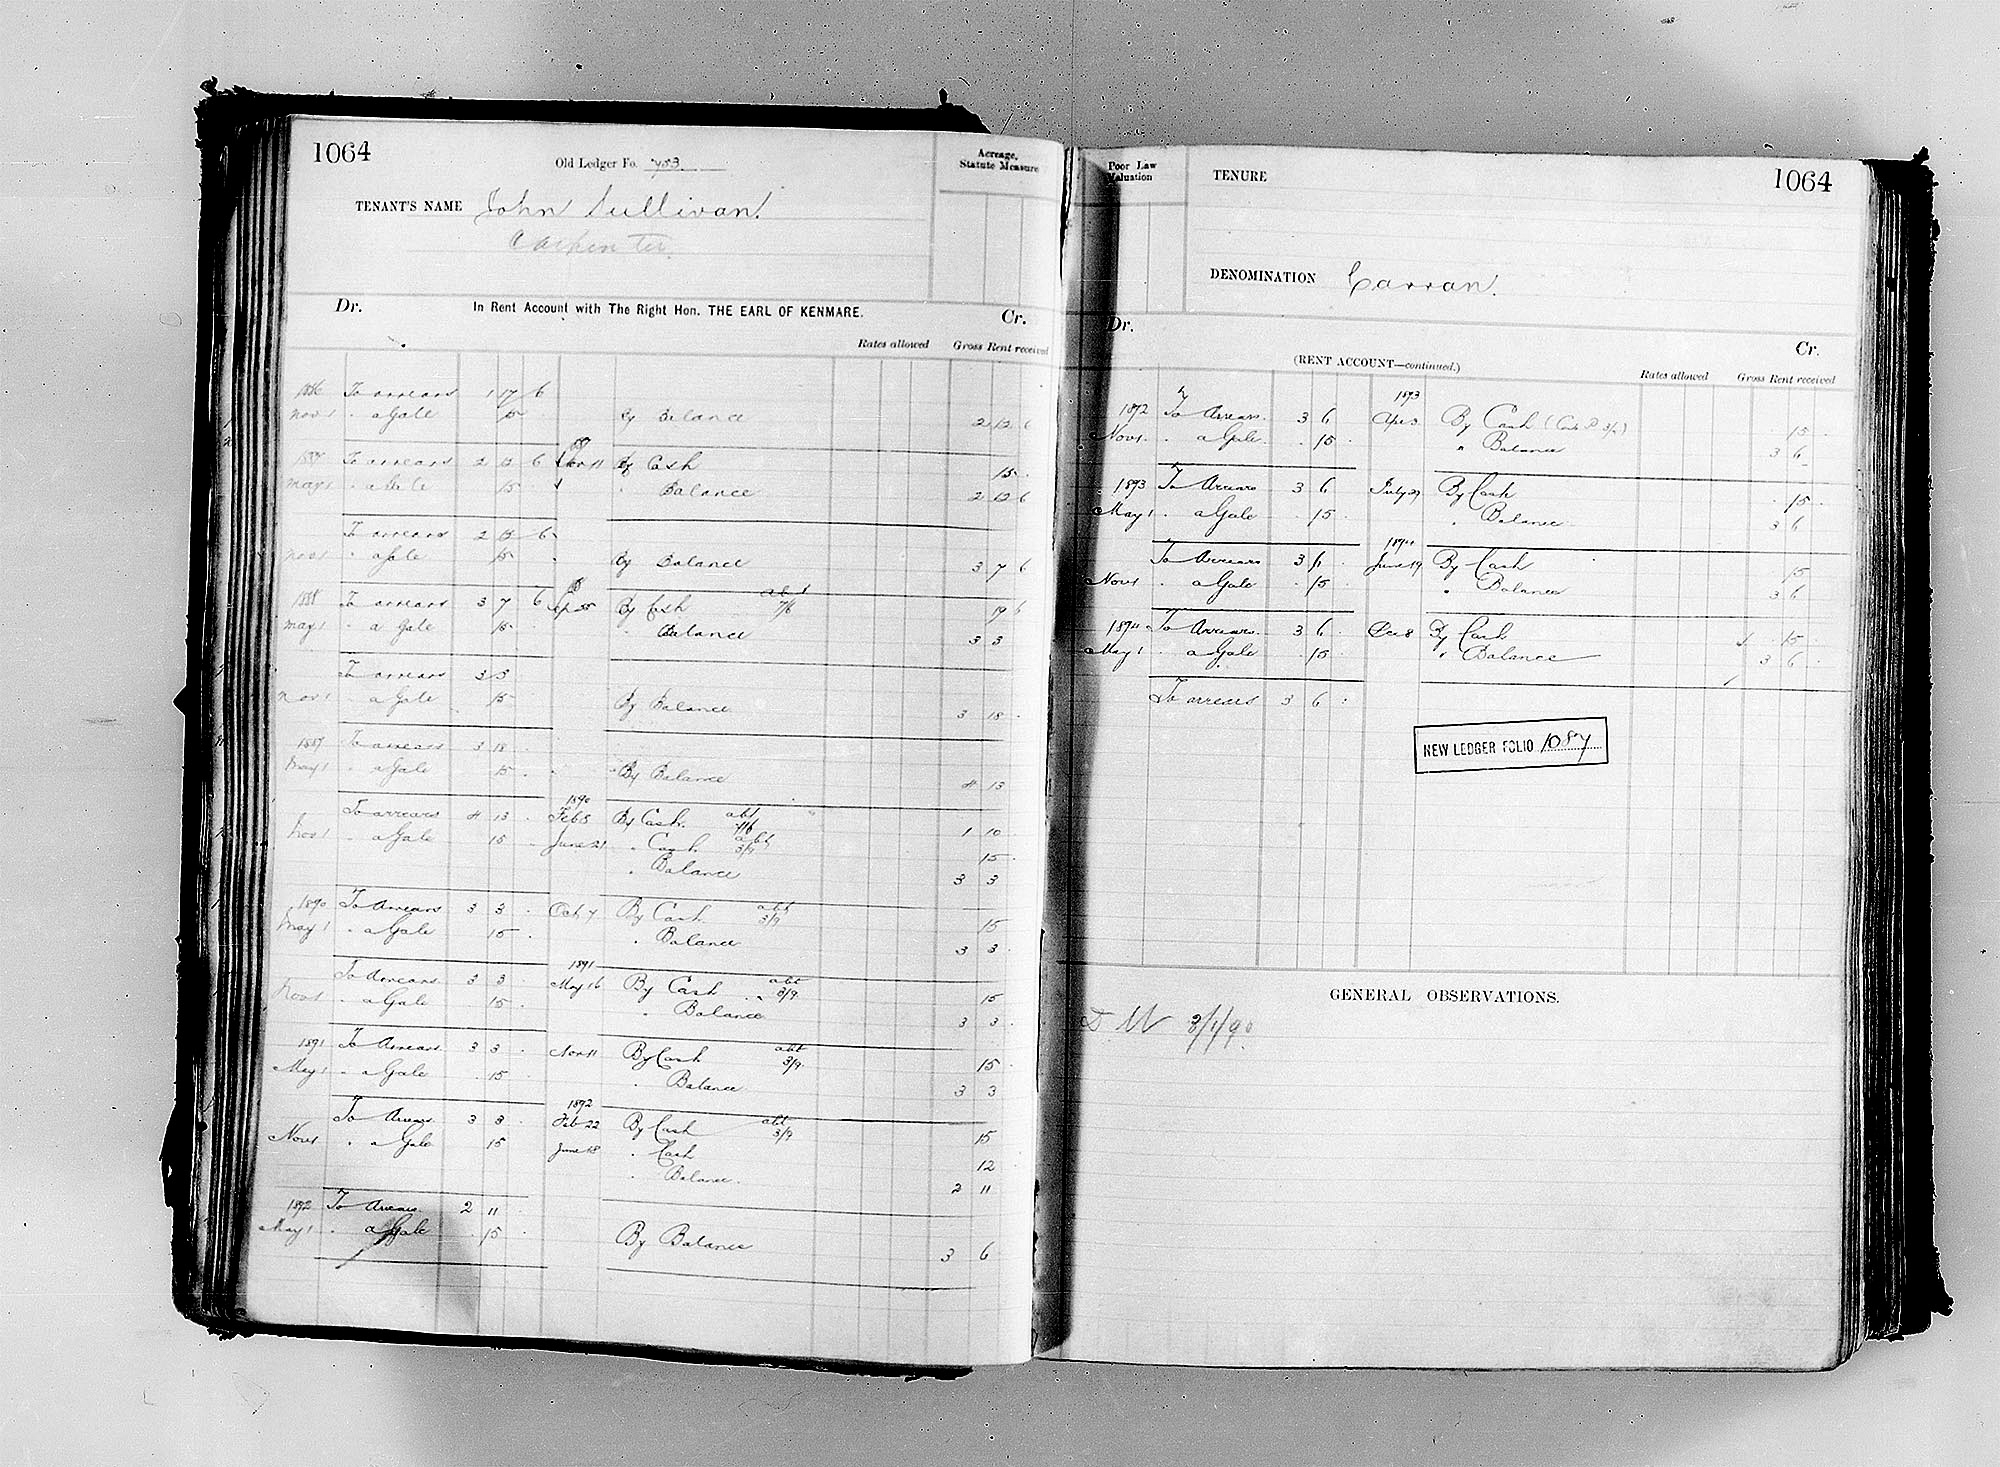 1064
Old Ledger Fo. 753
Acreage, Statute Measure
TENANT'S NAME John Sullivan
Carpenter
Dr. In Rent Account with The Right Hon. THE EARL OF KENMARE. Cr.
Rates allowed Gross Rent received
1886 To arrears 1 17 6
Nov 1 " a Gale 15 By Balance 2 12 6
To arrears 2 12 6 Nov 11 By Cash 15
May 1 " a Gale 15 " Balance 2 12 6
To arrears 2 12 6
Nov 1 " a Gale 15 By Balance 3 7 6
1888 To arrears 3 7 6 By Cash abt 7/6 19 6
May 1 " a Gale 15 " Balance 3 3
To arrears 3 3
Nov 1 " a Gale 15 By Balance 3 18
1889 To arrears 3 18
May 1 " a Gale 15 By Balance 4 13
1890
To arrears 4 13 Feb 8 By Cash abt 7/6 1 10
Nov 1 " a Gale 15 June 21 " Cash abt 3/9 15
" Balance 3 3
1890 To Arrears 3 3 Oct 7 By Cash abt 3/9 15
May 1 " a Gale 15 " Balance 3 3
1891
To Arrears 3 3 May 16 By Cash abt 3/9 15
Nov 1 " a Gale 15 " Balance 3 3
1891 To Arrears 3 3 Nov 11 By Cash abt 3/9 15
May 1 " a Gale 15 " Balance 3 3
1892
To Arrears 3 3 Feb 22 By Cash abt 3/9 15
Nov 1 " a Gale 15 June 18 " Cash 12
" Balance 2 11
1892 To Arrears 2 11
May 1 " a Gale 15 By Balance 3 6
Poor Law Valuation
TENURE
1064
DENOMINATION Carran
Dr. Cr.
(RENT ACCOUNT—continued.)
Rates allowed Gross Rent received
1893
1892 To Arrears 3 6 Apr 3 By Cash 15
Nov 1 " a Gale 15 " Balance 3 6
1893 To Arrears 3 6 July 29 By Cash 15
May 1 " a Gale 15 " Balance 3 6
1894
To Arrears 3 6 June 19 By Cash 15
Nov 1 " a Gale 15 " Balance 3 6
1894 To Arrears 3 6 Dec 8 By Cash 15
May 1 " a Gale 15 " Balance 3 6
To arrears 3 6
NEW LEDGER FOLIO 1087
GENERAL OBSERVATIONS.
3/1/90